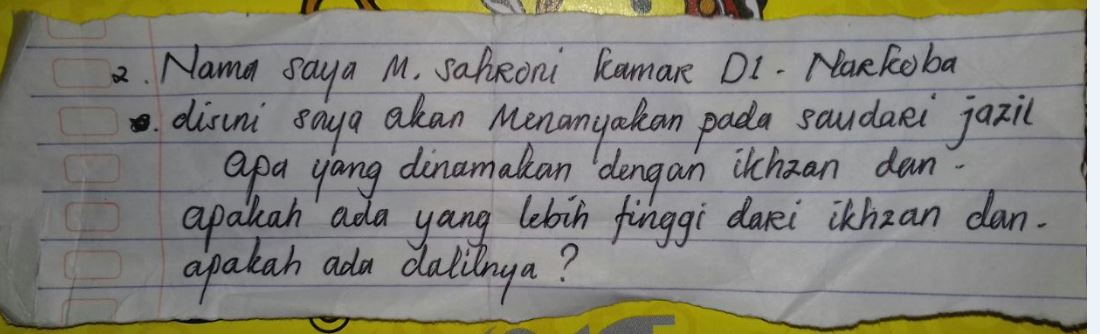 2. Nama saya M. Sahroni kamar D1 - Narkoba
disini saya akan Menanyakan pada saudari jazil
apa yang dinamakan dengan ikhzan dan -
apakah ada yang lebih tinggi dari ikhzan dan -
apakah ada dalilnya ?